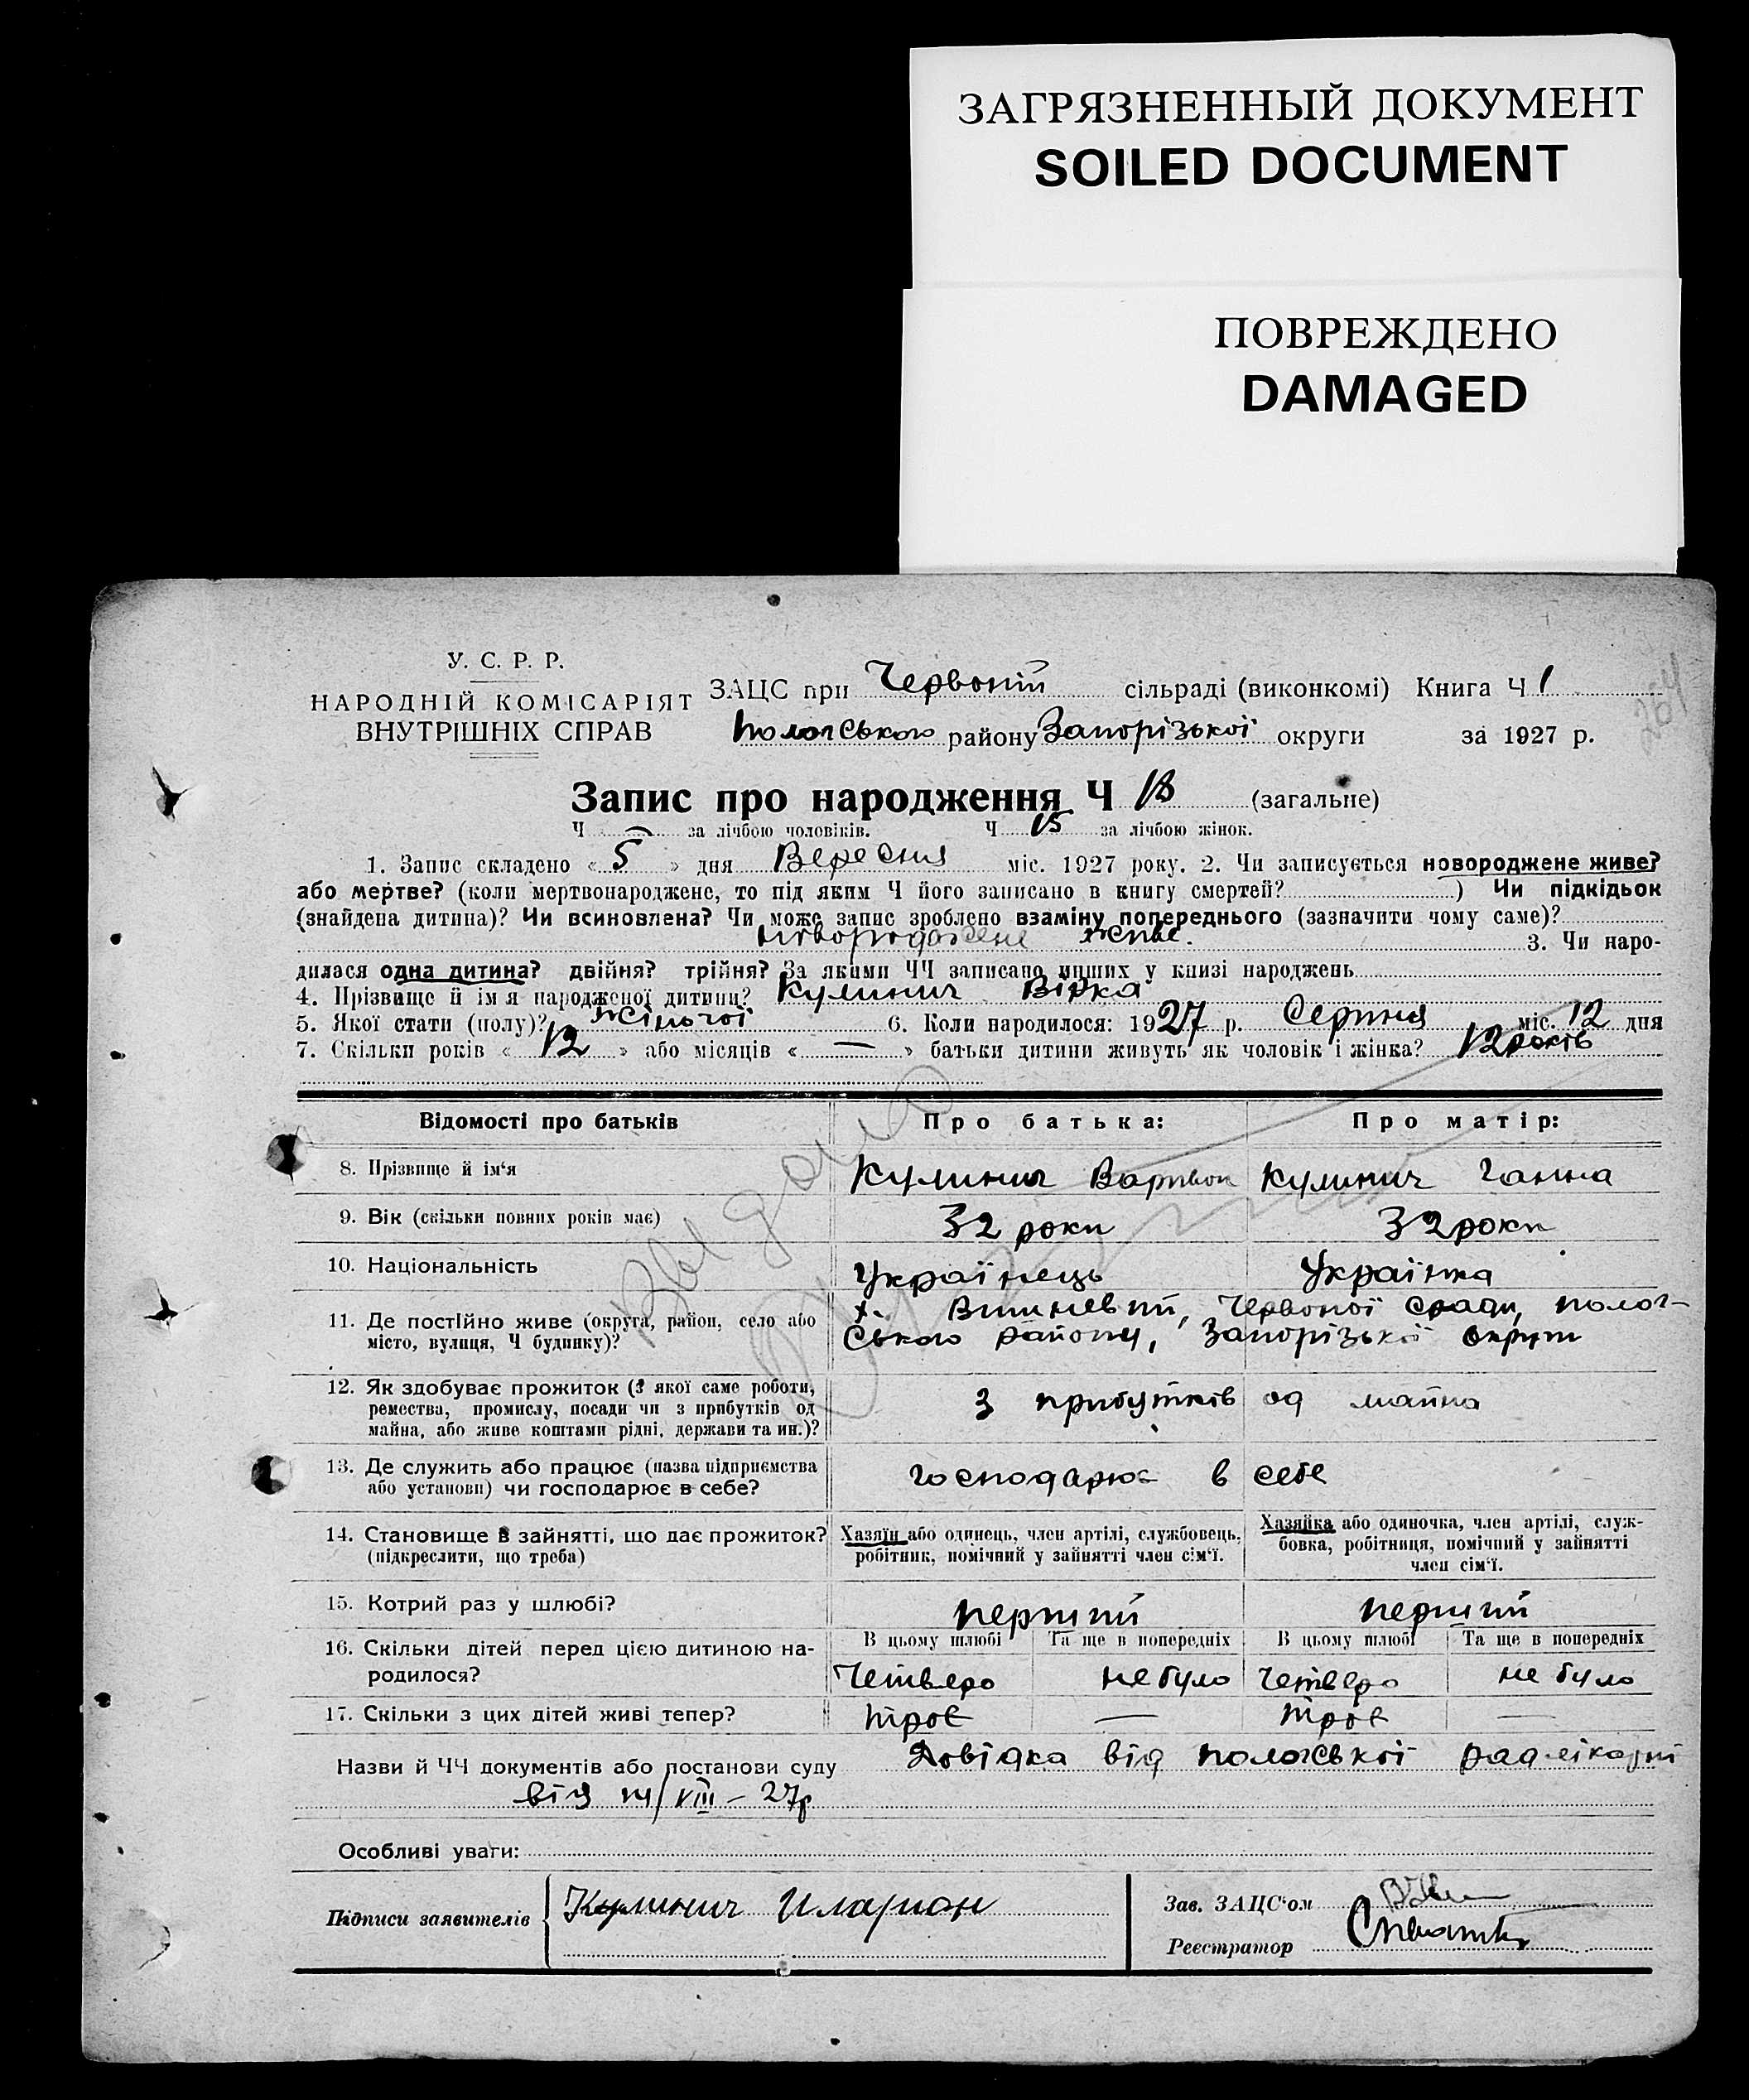 ЗАГРЯЗНЕННЫЙ ДОКУМЕНТ
SOILED DOCUMENT
ПОВРЕЖДЕНО
DAMAGED
У. С. Р. Р.
НАРОДНІЙ КОМІСАРІЯТ
ВНУТРІШНІХ СПРАВ
ЗАЦС при Червоній сільраді (виконкомі) Книга Ч 1
264
Пологського району Запорізької округи за 1927 р.
Запис про народження Ч 18 (загальне)
Ч — за лічбою чоловіків. Ч 15 за лічбою жінок.
1. Запис складено « 5 » дня Вересня міс. 1927 року. 2. Чи записується новороджене живе?
або мертве? (коли мертвонароджене, то під яким Ч його записано в книгу смертей?) Чи підкідьок
(знайдена дитина)? Чи всиновлена? Чи може запис зроблено взаміну попереднього (зазначити чому саме)?
новороджене живе. 3. Чи наро-
дилася одна дитина? двійня? трійня? За якими ЧЧ записано инших у книзі народжень
4. Прізвище й ім'я народженої дитини? Кулинич Вірка
5. Якої стати (полу)? жіночої 6. Коли народилося: 1927 р. Серпня міс. 12 дня
7. Скільки років « 12 » або місяців « — » батьки дитини живуть як чоловік і жінка? 12 років
Відомості про батьків Про батька: Про матір:
8. Прізвище й ім'я Кулинич Кулинич Ганна
9. Вік (скільки повних років має) 32 роки 32 роки
10. Національність Українець Українка
11. Де постійно живе (округа, район, село або х. Вишневий, Червоної сради, полог-
місто, вулиця, Ч будинку)? ського району, Запорізької округи
12. Як здобуває прожиток (з якої саме роботи,
ремества, промислу, посади чи з прибутків од з прибутків од майна
майна, або живе коштами рідні, держави та ин.)?
13. Де служить або працює (назва підприємства господарює в себе
або установи) чи господарює в себе?
14. Становище в зайнятті, що дає прожиток? Хазяїн або одинець, член артілі, службовець, Хазяйка або одиночка, член артілі, служ-
(підкреслити, що треба) робітник, помічний у зайнятті член сім'ї. бовка, робітниця, помічний у зайнятті
член сім'ї.
15. Котрий раз у шлюбі? перший перший
16. Скільки дітей перед цією дитиною на- В цьому шлюбі Та ще в попередніх В цьому шлюбі Та ще в попередніх
родилося? Четверо не було Четверо не було
17. Скільки з цих дітей живі тепер? троє — троє —
Назви й ЧЧ документів або постанови суду Довідка від пологської
від VIII – 27р
Особливі уваги:
Підписи заявителів Кулинич Иларион
Зав. ЗАЦС'ом
Реєстратор
Выдано